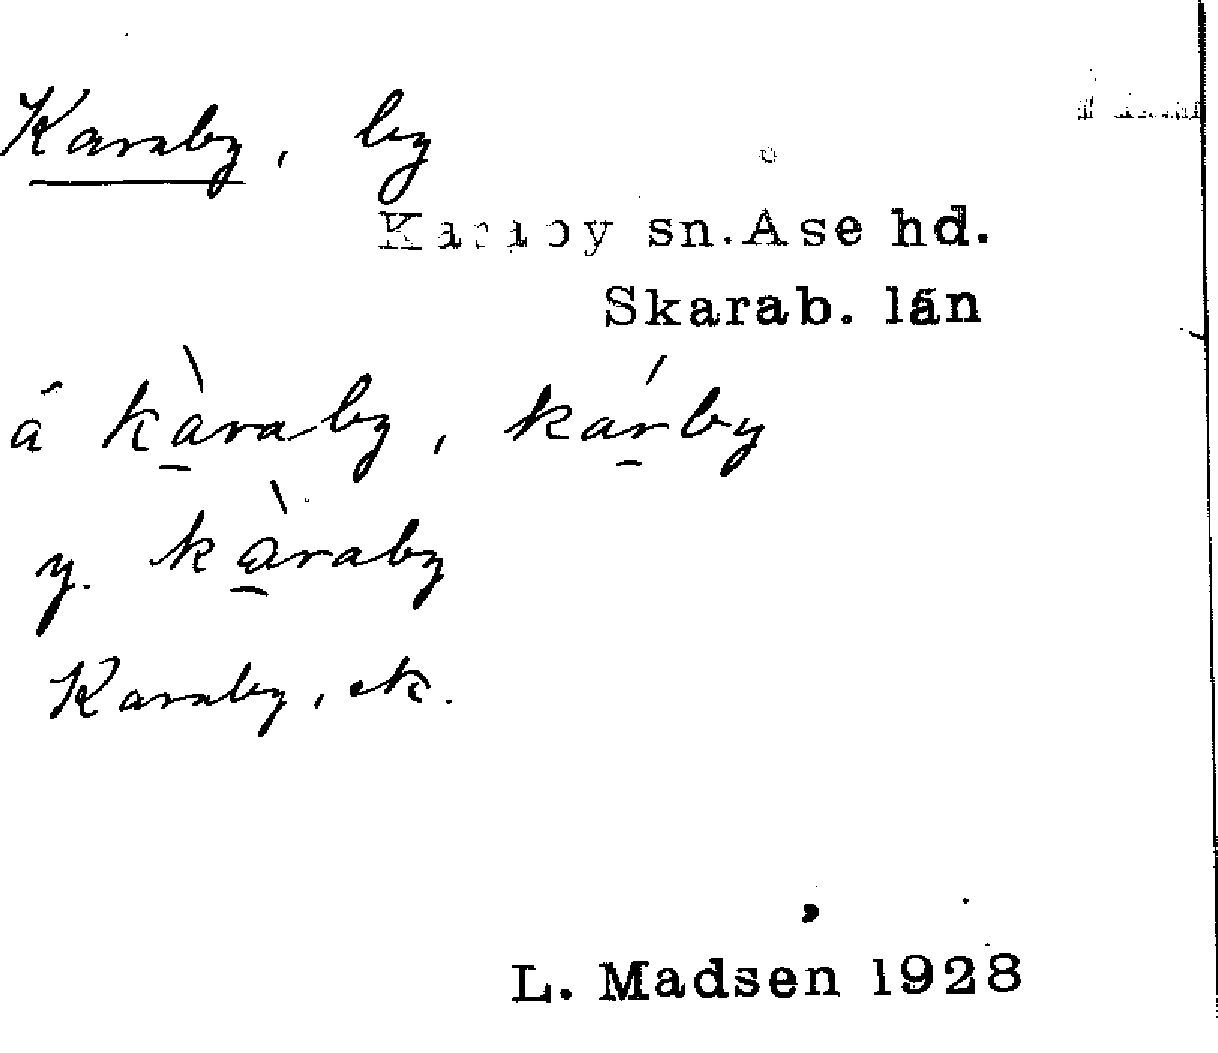 Karaby, by
Karaby sn. Åse hd.
Skarab. län
ä kàraby, kárby
y. kàraby
Karaby, ek.
L. Madsen 1928